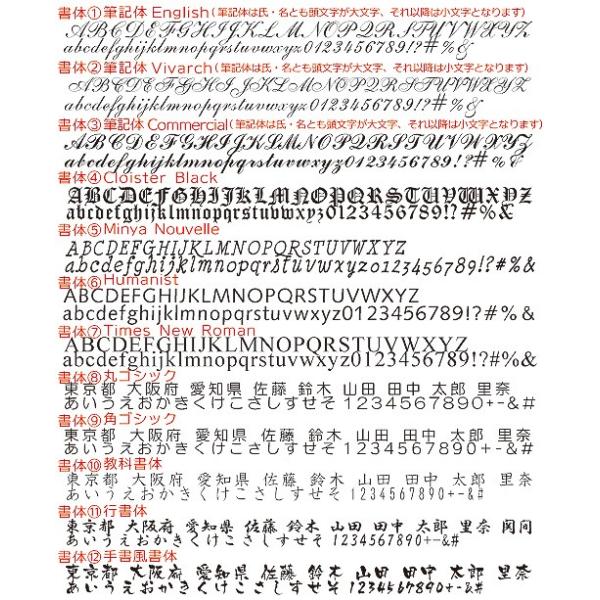 書体①筆記体 English(筆記体は氏・名とも頭文字が大文字、それ以降は小文字となります)
ABCDEFGHIJKLMNOPQRSTUVWXYZ
abcdefghijklmnopqrstuvwxyz0123456789!?#%&
書体②筆記体 Vivarch(筆記体は氏・名とも頭文字が大文字、それ以降は小文字となります)
ABCDEFGHIJKLMNOPQRSTUVWXYZ
abcdefghijklmnopqrstuvwxyz0123456789!?#%&
書体③筆記体 Commercial(筆記体は氏・名とも頭文字が大文字、それ以降は小文字となります)
ABCDEFGHIJKLMNOPQRSTUVWXYZ
abcdefghijklmnopqrstuvwxyz0123456789!?#%&
書体④Cloister Black
ABCDEFGHIJKLMNOPQRSTUVWXYZ
abcdefghijklmnopqrstuvwxyz0123456789!?#%&
書体⑤Minya Nouvelle
ABCDEFGHIJKLMNOPQRSTUVWXYZ
abcdefghijklmnopqrstuvwxyz0123456789!?#%&
書体⑥Humanist
ABCDEFGHIJKLMNOPQRSTUVWXYZ
abcdefghijklmnopqrstuvwxyz0123456789!?#%&
書体⑦Times New Roman
ABCDEFGHIJKLMNOPQRSTUVWXYZ
abcdefghijklmnopqrstuvwxyz0123456789!?#%&
書体⑧丸ゴシック
東京都 大阪府 愛知県 佐藤 鈴木 山田 田中 太郎 里奈
あいうえおかきくけこさしすせそ 1234567890+-&#
書体⑨角ゴシック
東京都 大阪府 愛知県 佐藤 鈴木 山田 田中 太郎 里奈
あいうえおかきくけこさしすせそ 1234567890+-&#
書体⑩教科書体
東京都 大阪府 愛知県 佐藤 鈴木 山田 田中 太郎 里奈
あいうえおかきくけこさしすせそ 1234567890+-&#
書体⑪行書体
東京都 大阪府 愛知県 佐藤 鈴木 山田 田中 太郎 里奈
あいうえおかきくけこさしすせそ 1234567890+-&#
書体⑫手書風書体
東京都 大阪府 愛知県 佐藤 鈴木 山田 田中 太郎 里奈
あいうえおかきくけこさしすせそ 1234567890+-&#